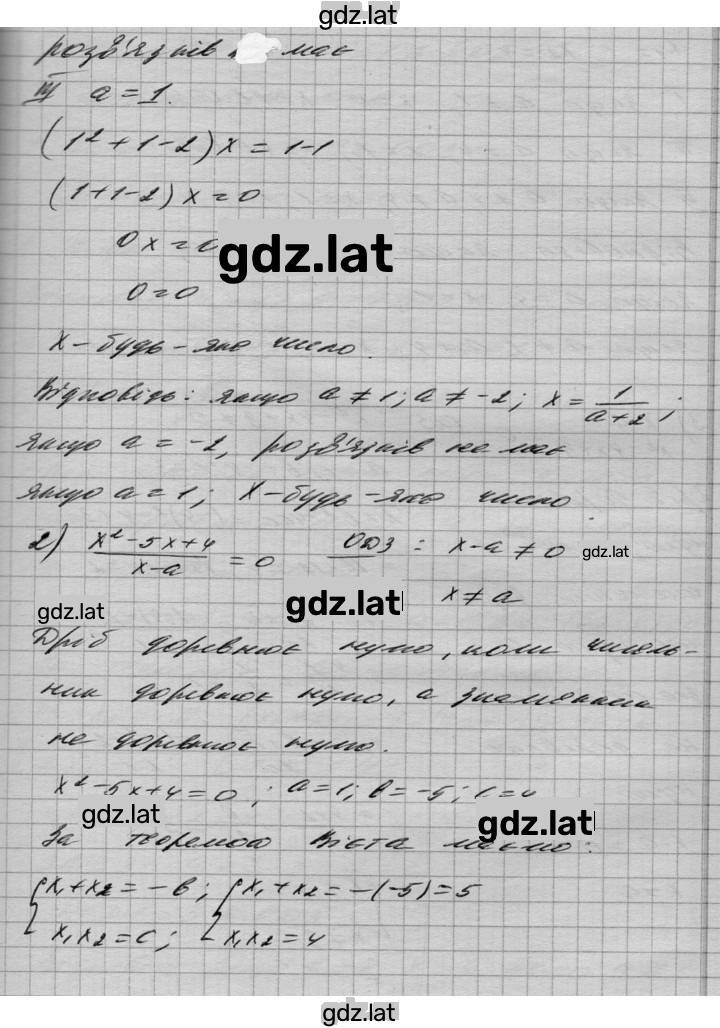 gdz.lat
розв'язків має
III a = 1.
(1² + 1 - 2) x = 1 - 1
(1 + 1 - 2) x = 0
0x = 0
gdz.lat
0 = 0
x - будь - яке число.
Відповідь: якщо a ≠ 1; a ≠ -2; x = 1/(a+2);
якщо a = -2, розв'язків не має
якщо a = 1; x - будь - яке число.
2) (x² - 5x + 4)/(x - a) = 0 ОДЗ: x - a ≠ 0 gdz.lat
gdz.lat x ≠ a
gdz.lat
Дріб дорівнює нулю, коли чисель-
ник дорівнює нулю, а знаменник
не дорівнює нулю.
x² - 5x + 4 = 0; a = 1; b = -5; c = 4
gdz.lat gdz.lat
За теоремою Вієта маємо:
{ x₁ + x₂ = -b; { x₁ + x₂ = -(-5) = 5
x₁x₂ = c; x₁x₂ = 4
gdz.lat